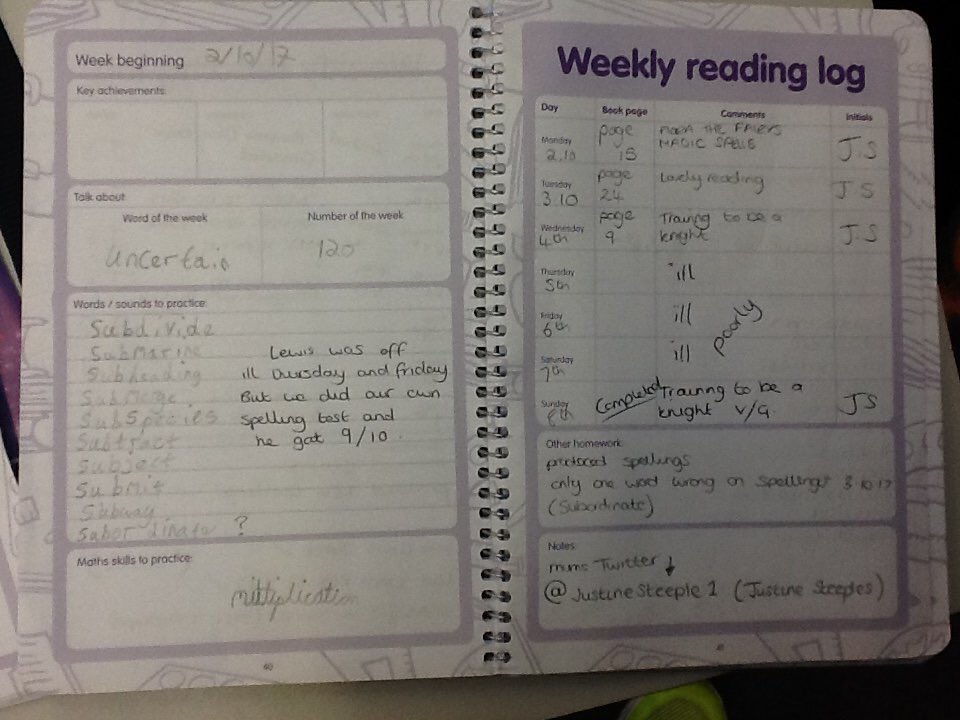 Week beginning 2/10/17
Key achievements:
Talk about:
Word of the week
Number of the week
Uncertain
120
Words / sounds to practice:
Subdivide
Submarine
Subheading
Submerge
Subspecies
Subtract
Subject
Submit
Subway
Subordinate ?
Lewis was off
ill thursday and friday
But we did our own
spelling test and
he got 9/10.
Maths skills to practice:
multiplication
40
Weekly reading log
Day Book page Comments Initials
Monday 2.10 page 15 THE MAGIC SPELLS J.S
Tuesday 3.10 page 24 Lovely reading J S
Wednesday 4th page 9 Training to be a knight J.S
Thursday 5th ill
Friday 6th ill
poorly
Saturday 7th ill
Sunday 8th Completed Training to be a knight v/g. JS
Other homework:
practiced spellings
only one word wrong on spellings 3 10 17
(Subordinate)
Notes:
mums Twitter ↓
@JustineSteeple1 (Justine Steeples)
41